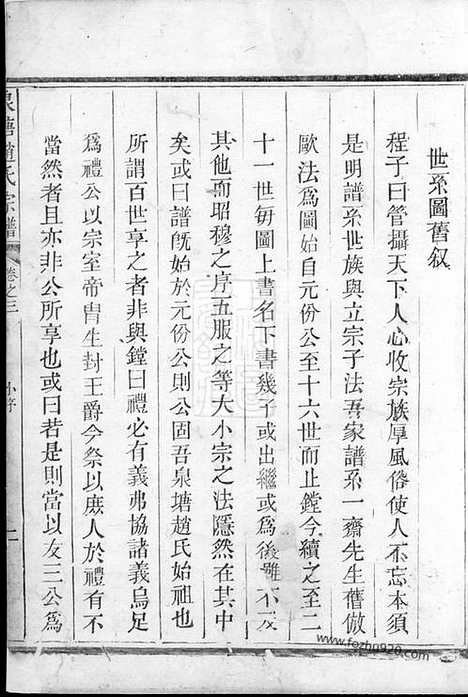 世系圖舊叙
程子曰管攝天下人心收宗族厚風俗使人不忘本須
是明譜系世族與立宗子法吾家譜系一齋先生舊倣
歐法爲圖始自元份公至十六世而止鏜今續之至二
十一世毎圖上書名下書幾子或出繼或爲後雖不及
其他而昭穆之序五服之等大小宗之法隱然在其中
矣或曰譜旣始於元份公則公固吾泉塘趙氏始祖也
所謂百世享之者非與鏜曰禮必有義弗協諸義烏足
爲禮公以宗室帝胄生封王爵今祭以庶人於禮有不
當然者且亦非公所享也或曰若是則當以友三公爲
泉塘趙氏宗譜
卷之三
小序
www.fozhu920.com